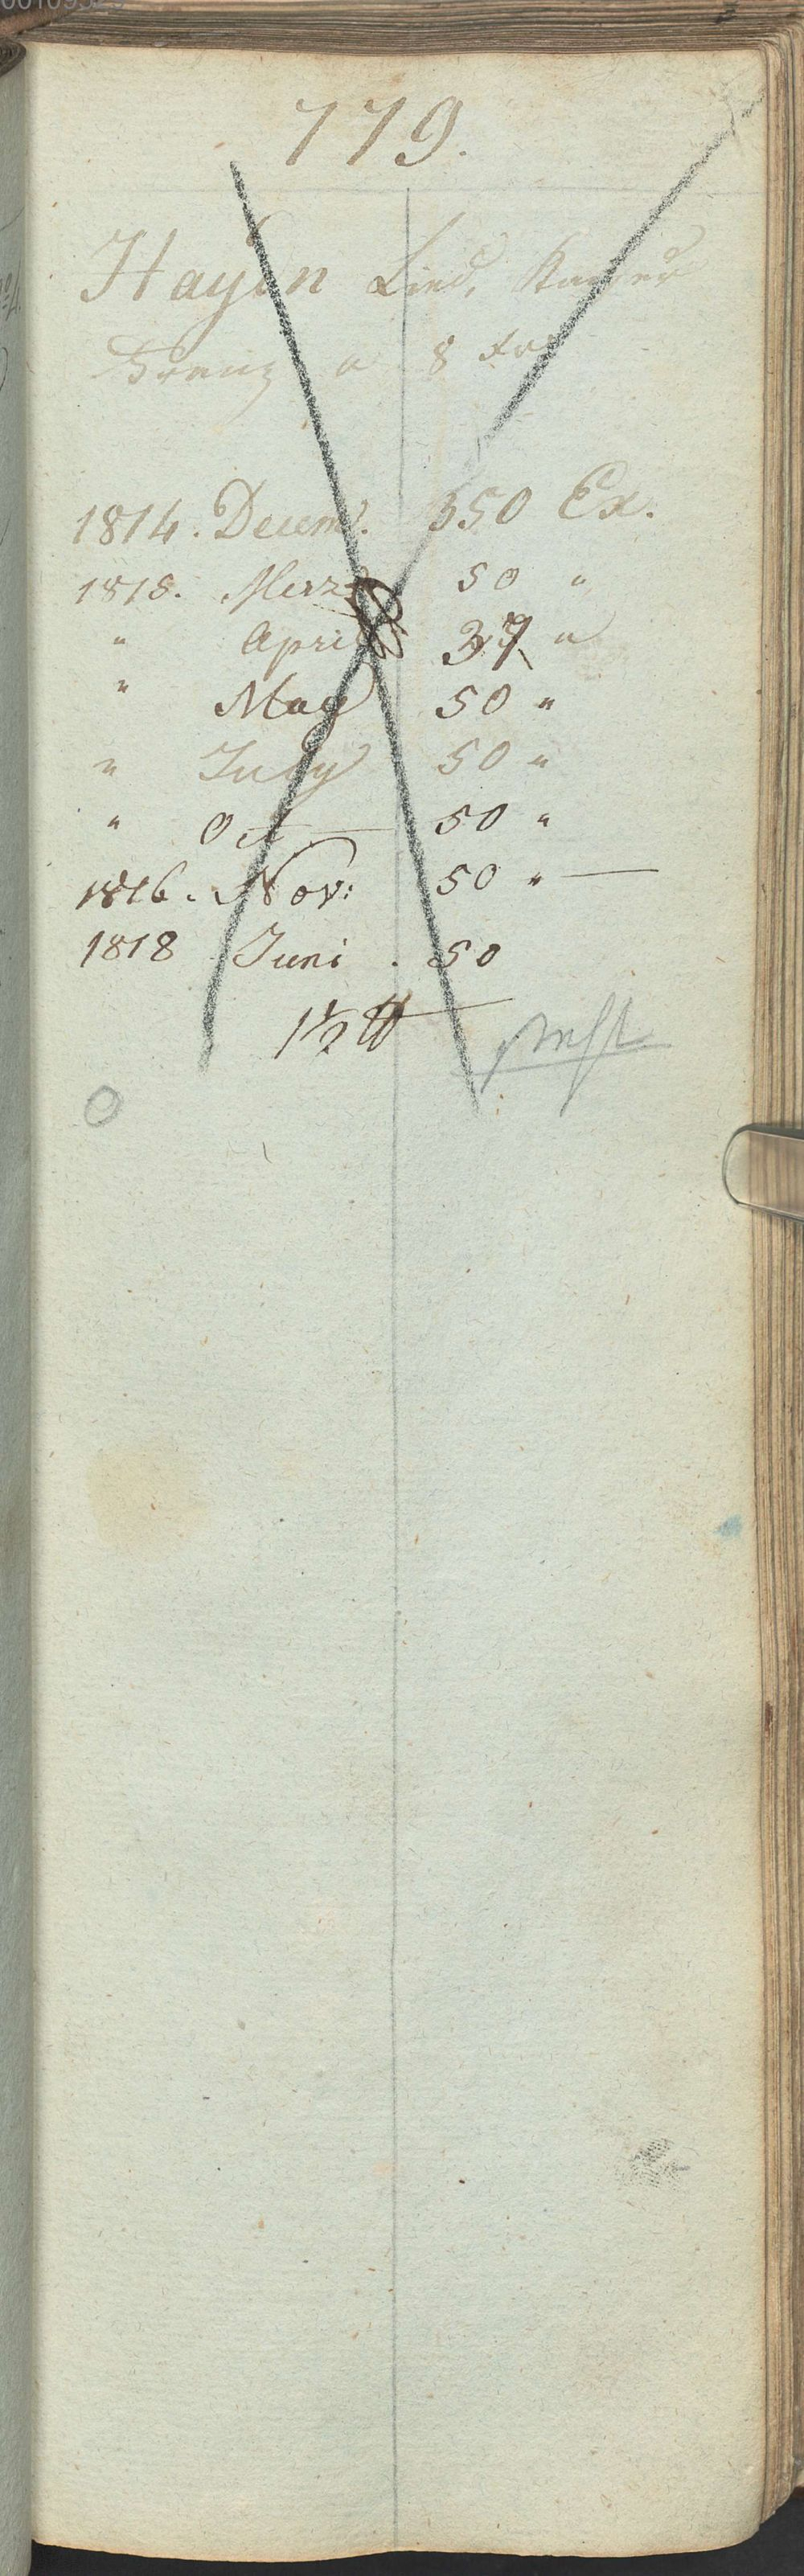 779.
Haydn Lied, Kayser
Franz a 8 xr
1814. Decemb. 350 Ex.
1815. Merz 50 "
" April 37 "
" May 50 "
" July 50 "
" Oct 50 "
1816. Nov: 50 "
1818 Juni . 50
1½ ℔